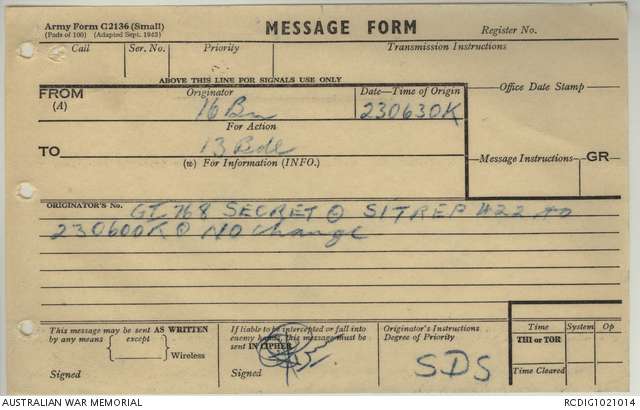 Army Form C2136 (Small)
(Pads of 100) (Adapted Sept. 1942)
MESSAGE FORM
Register No.
Call Ser. No. Priority Transmission Instructions
ABOVE THIS LINE FOR SIGNALS USE ONLY
FROM
(A)
Originator
16 Bn
Date—Time of Origin
230630K
Office Date Stamp
For Action
TO
13 Bde
(w) For Information (INFO.)
Message Instructions GR
ORIGINATOR'S No. GI 768 SECRET SITREP 422 to
230600K NO Change
This message may be sent AS WRITTEN
by any means except
Wireless
Signed
If liable to be intercepted or fall into
enemy hands, this message must be
sent IN CIPHER
Signed
Originator's Instructions
Degree of Priority
SDS
Time System Op
THI or TOR
Time Cleared
AUSTRALIAN WAR MEMORIAL
RCDIG1021014